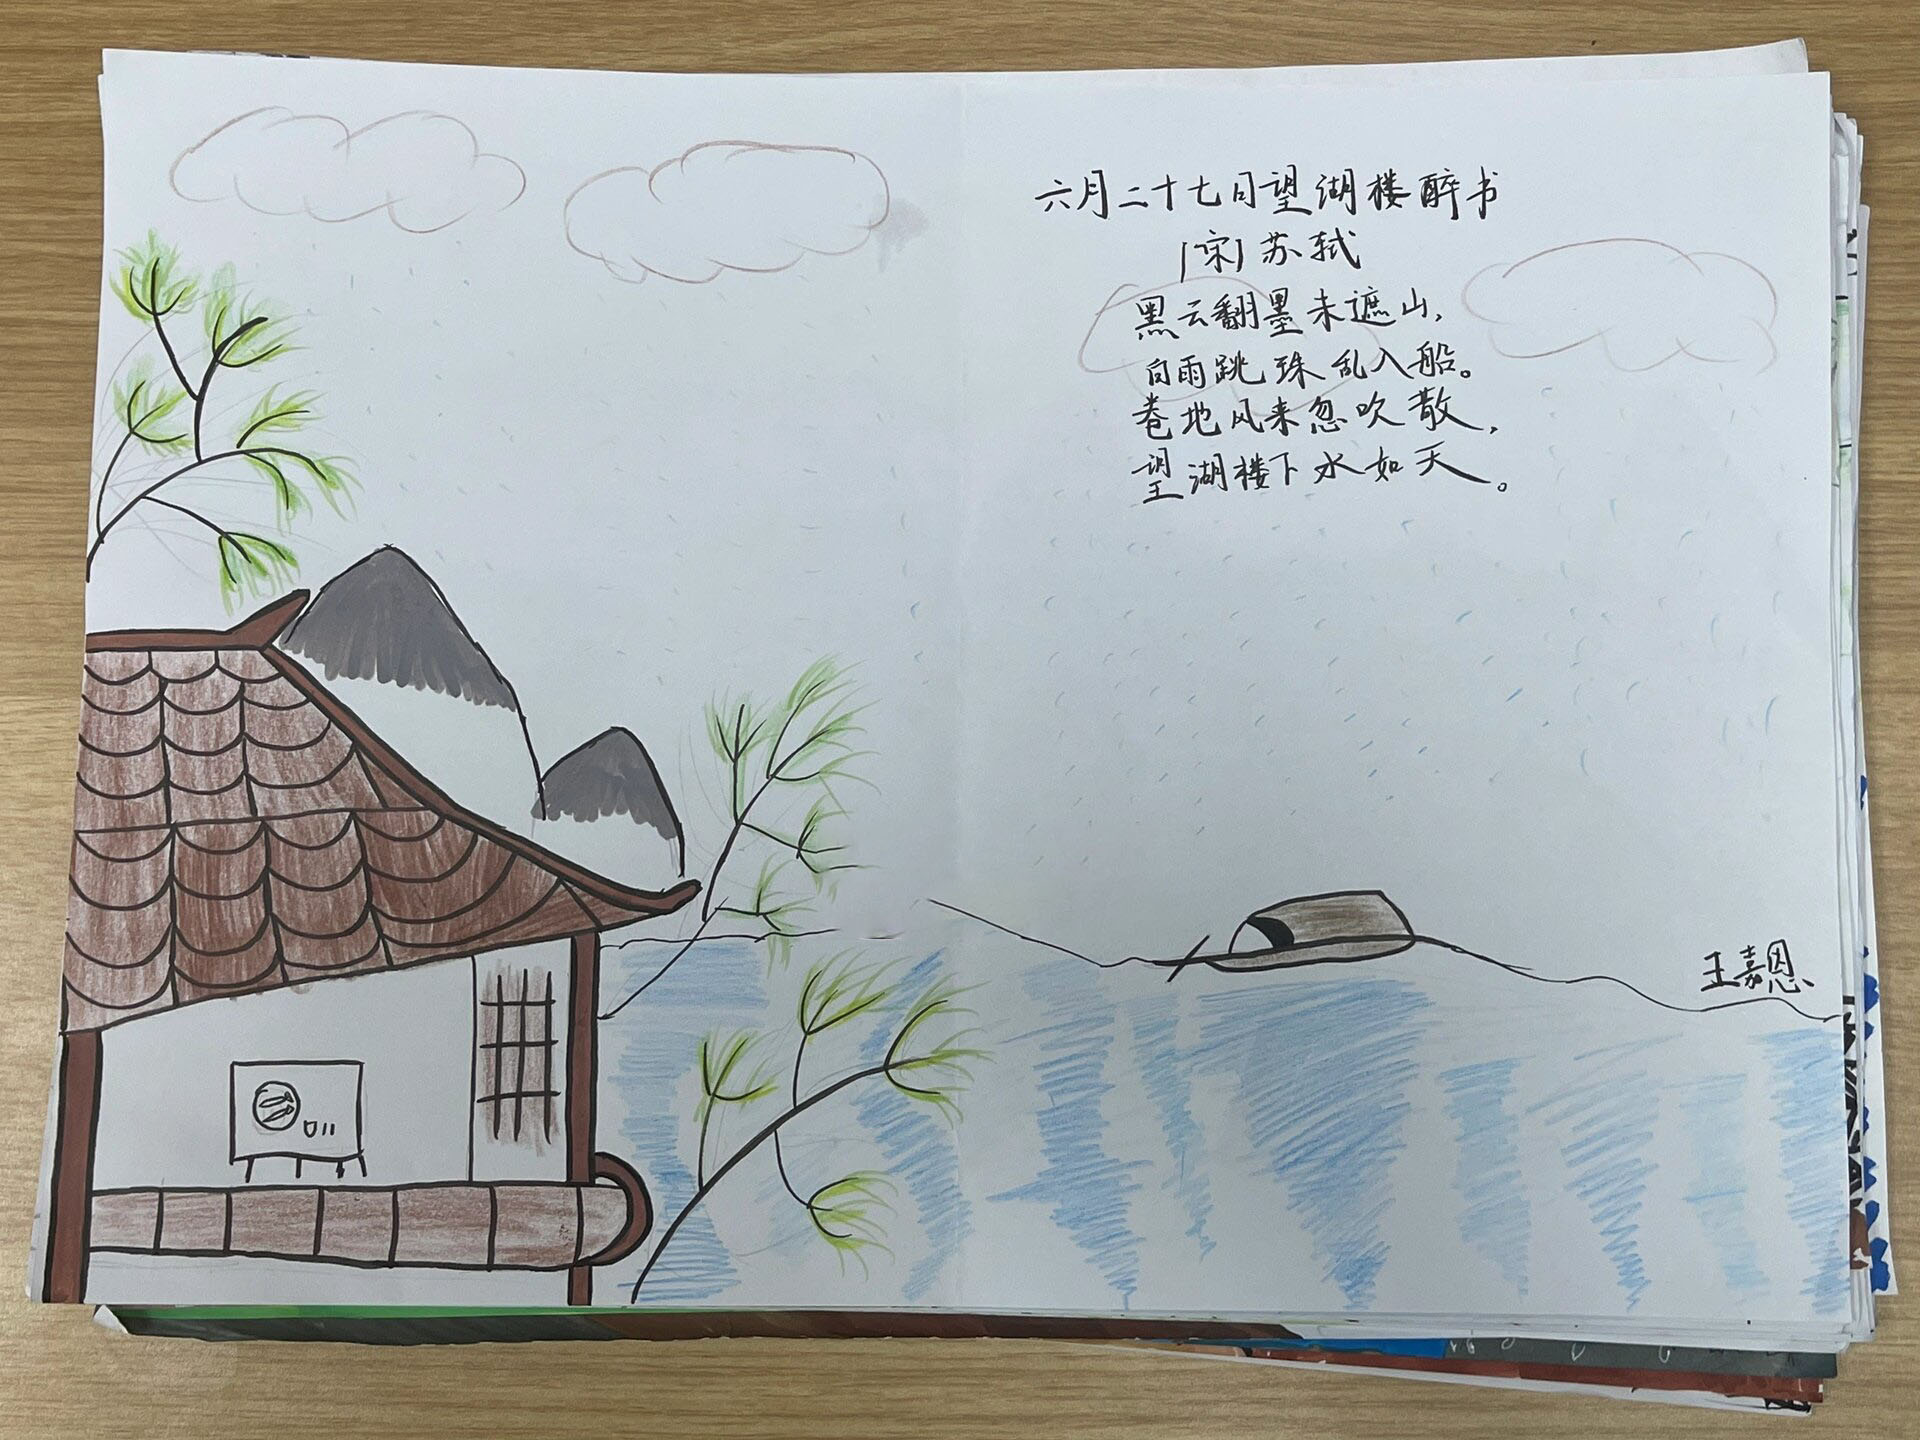 六月二十七日望湖楼醉书
[宋]苏轼
黑云翻墨未遮山,
白雨跳珠乱入船。
卷地风来忽吹散,
望湖楼下水如天。
王嘉恩